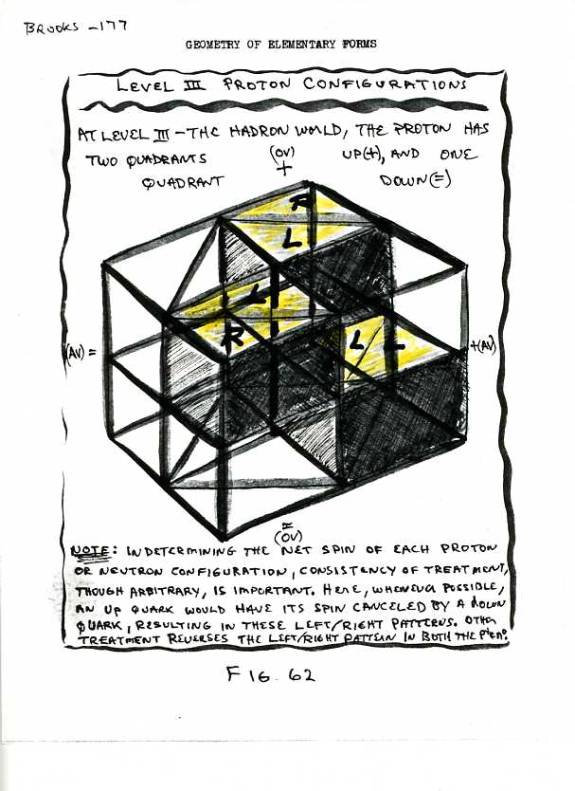 BROOKS -177
GEOMETRY OF ELEMENTARY FORMS
LEVEL III PROTON CONFIGURATIONS
AT LEVEL III - THE HADRON WORLD, THE PROTON HAS
TWO QUADRANTS (OV) UP(+), AND ONE
+
QUADRANT DOWN(=)
R
L
L
R
L
(AV) =
+(AV)
=
(OV)
NOTE: IN DETERMINING THE NET SPIN OF EACH PROTON
OR NEUTRON CONFIGURATION, CONSISTENCY OF TREATMENT,
THOUGH ARBITRARY, IS IMPORTANT. HERE, WHENEVER POSSIBLE,
AN UP QUARK WOULD HAVE ITS SPIN CANCELED BY A DOWN
QUARK, RESULTING IN THESE LEFT/RIGHT PATTERNS. OTHER
TREATMENT REVERSES THE LEFT/RIGHT PATTERN IN BOTH THE
FIG. 62